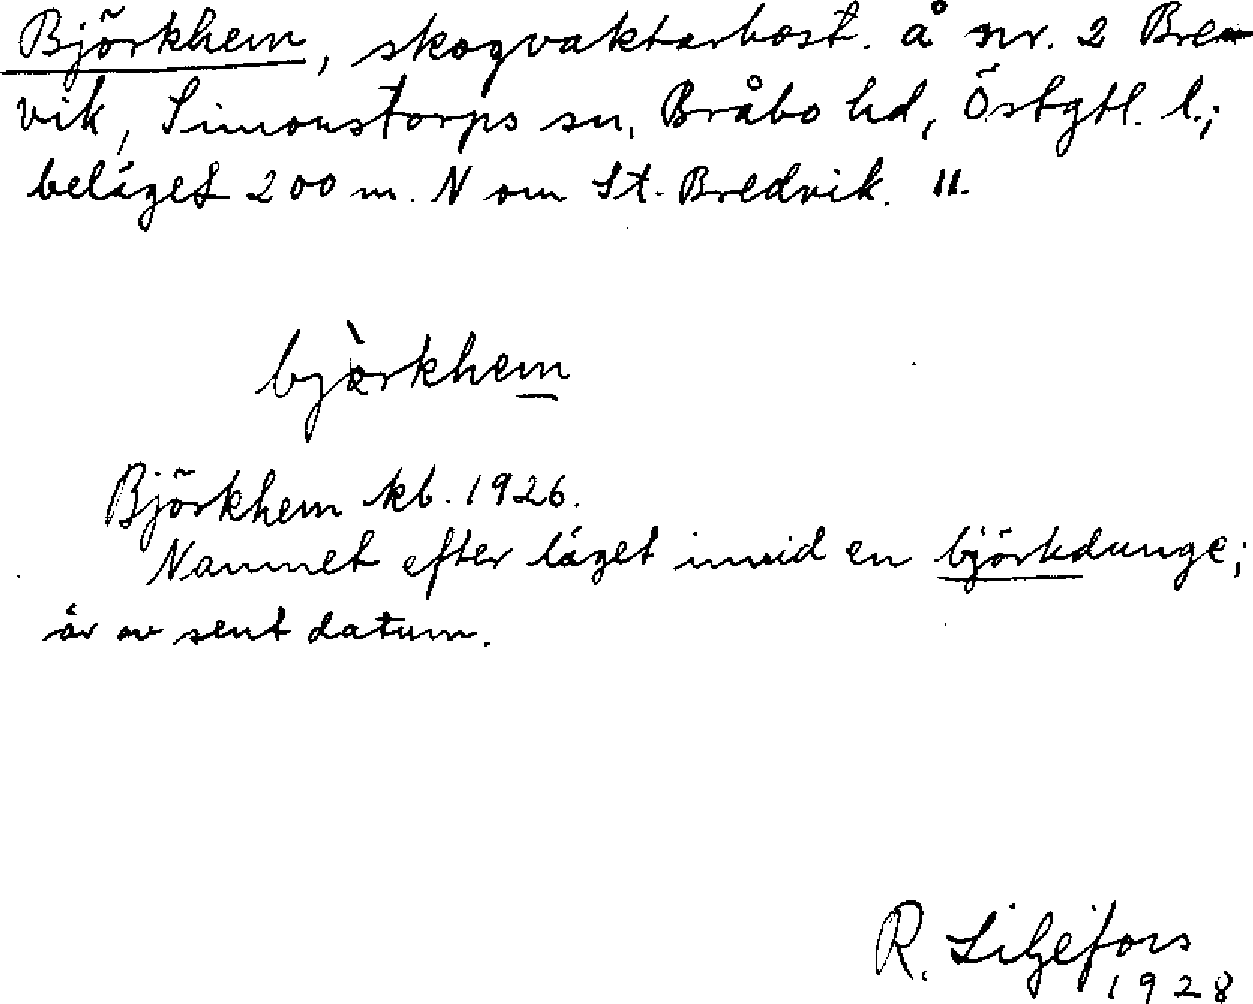 Björkhem, skogvaktarbost. å nr. 2 Bre-
vik, Simonstorps sn, Bråbo hd, Östgtl. l.;
beläget 200 m. N om St. Bredvik. 11.
bjö̀rkhem
Björkhem kb. 1926.
Namnet efter läget invid en björkdunge;
är av sent datum.
R. Liljefors
1928